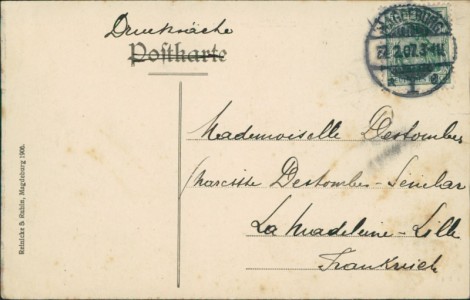 Drucksache
Postkarte
MAGDEBURG
22.2.07.3-4N.
* 1 e
Mademoiselle Destombes
Narcisse Destombes-Senelar
La Madeleine - Lille
Frankreich
Reinicke & Rubin, Magdeburg 1906.